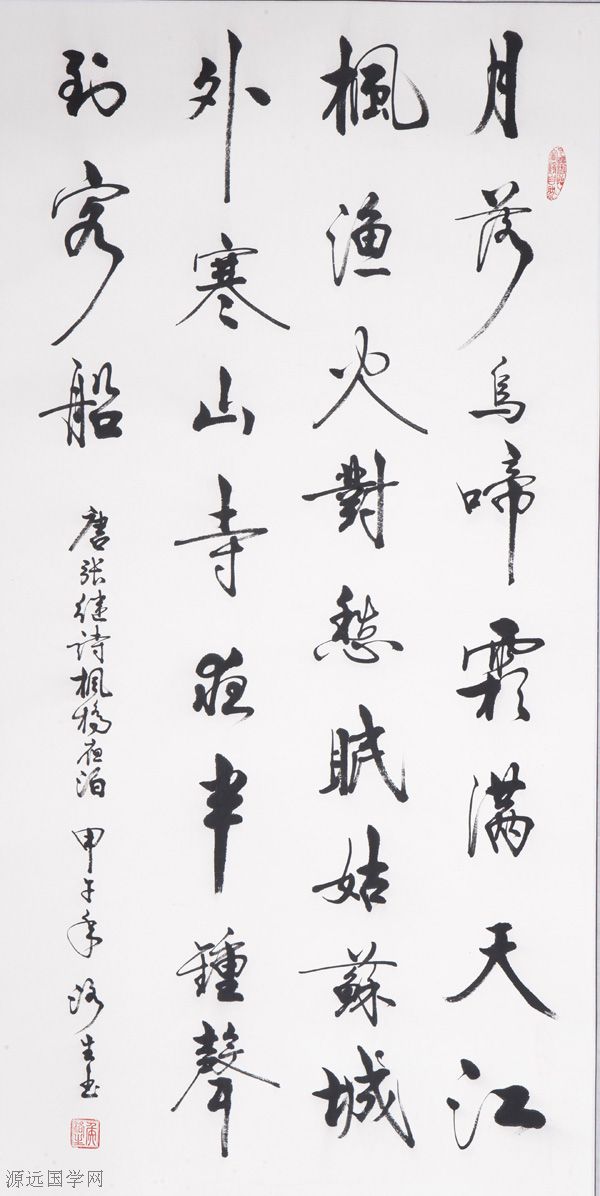 月落烏啼霜满天江
楓渔火對愁眠姑蘇城
外寒山寺夜半鍾聲
到客船
唐张继詩楓橋夜泊 甲午年 生书
源远国学网